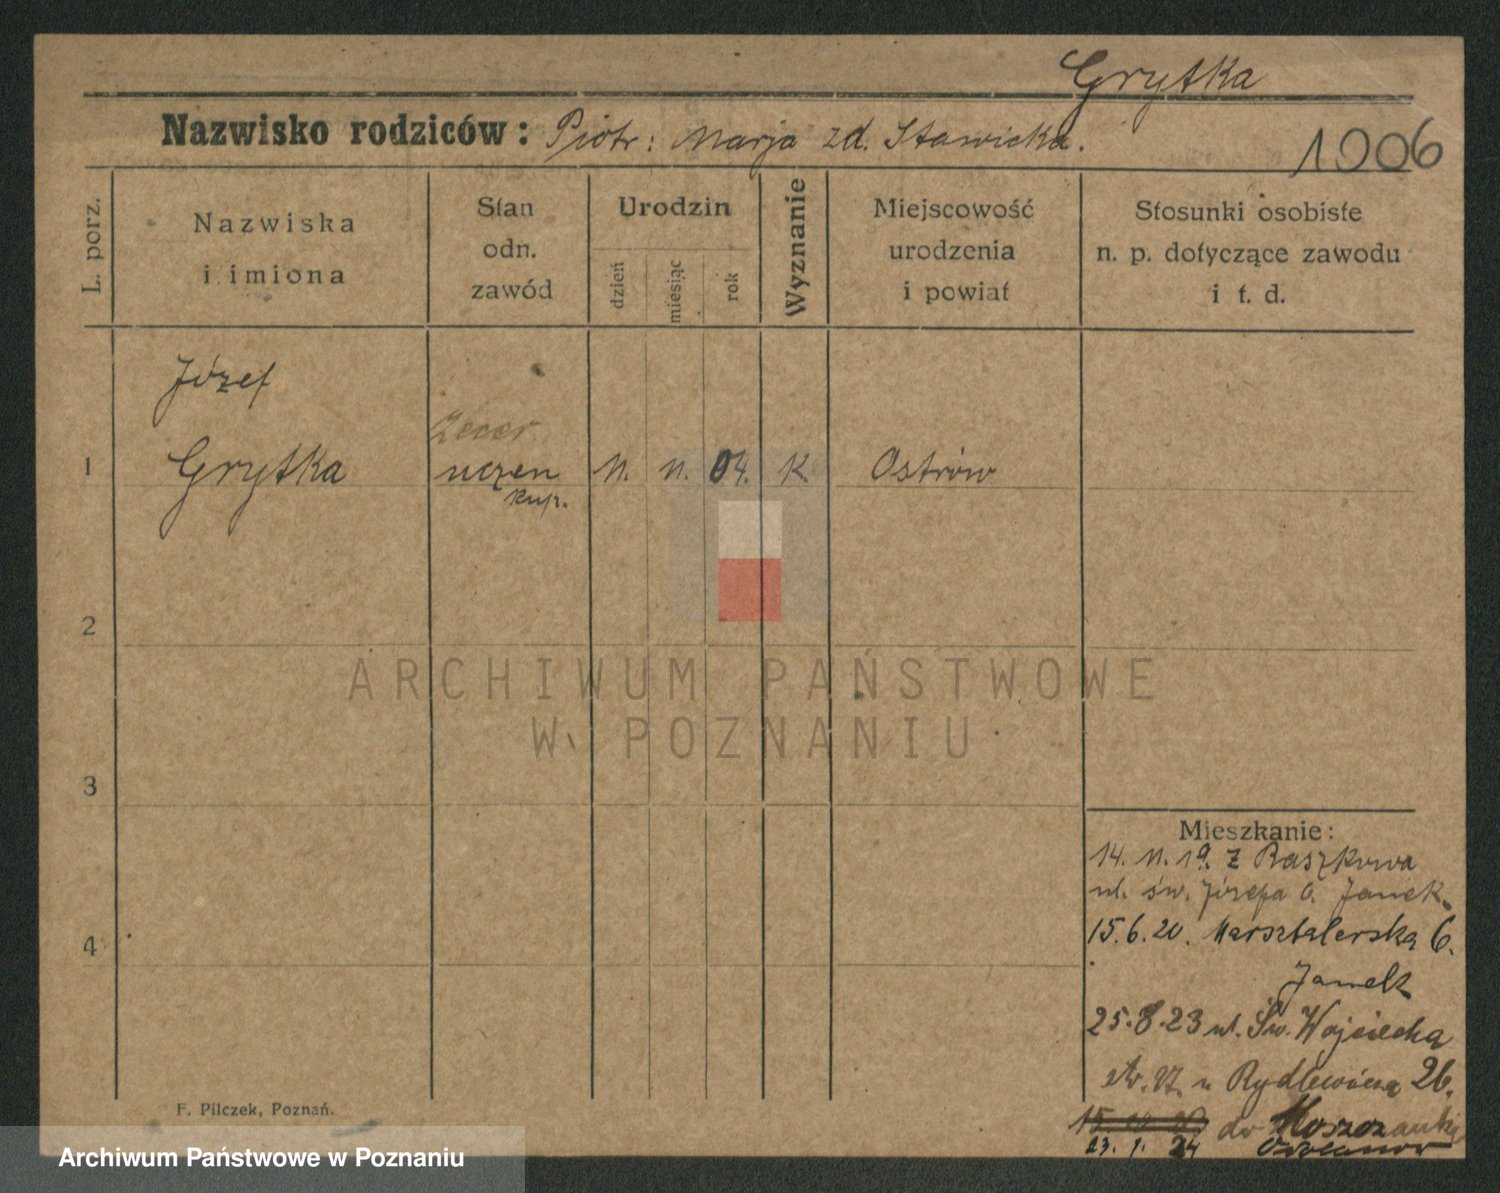 Grytka
Nazwisko rodziców: Piotr: Marja zd. Stawicka.
1906
L. porz.
Nazwiska
i imiona
Stan
odn.
zawód
Urodzin
dzień
miesiąc
rok
Wyznanie
Miejscowość
urodzenia
i powiat
Stosunki osobiste
n. p. dotyczące zawodu
i t. d.
Józef
zecer
1 Grytka uczen 11. 11. 04. K. Ostrów
kup.
2
3
4
ARCHIWUM PAŃSTWOWE
W POZNANIU
Mieszkanie:
14. 11. 19. z Raszkowa
ul. św. Józefa 6. Janek.
15.6.20. Marsztalerska 6.
Janek
25.8.23 ul. Św. Wojciecha
u Rydlewicza 26.
do
23. 1. 24
F. Pilczek, Poznań.
Archiwum Państwowe w Poznaniu